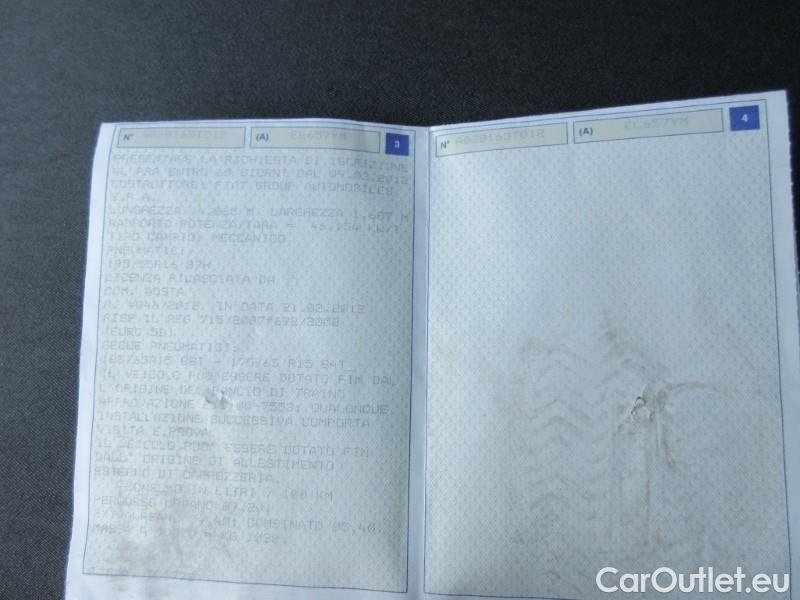 N° A020163TO12 (A) EL657YM 3
PRESENTARE LA RICHIESTA DI ISCRIZIONE
AL PRA ENTRO 60 GIORNI DAL 09.03.2012
COSTRUTTORE: FIAT GROUP AUTOMOBILES
S.P.A.
LUNGHEZZA 4,065 M LARGHEZZA 1,687 M
RAPPORTO POTENZA/TARA = KW/T
TIPO CAMBIO: MECCANICO
PNEUMATICI:
195/55R16 87H
LICENZA RILASCIATA DA
COM. AOSTA
N. 4046/2012 IN DATA 21.02.2012
RIF IL REG 715/2007*692/2008
(EURO 5B)
SEGUE PNEUMATICI:
185/65R15 88T - 175/65 R15 84T
IL VEICOLO PUO' ESSERE DOTATO FIN DAL
L'ORIGINE DEL GANCIO DI TRAINO
APPROVAZIONE 00-7553; QUALUNQUE
INSTALLAZIONE SUCCESSIVA COMPORTA
VISITA E PROVA
IL VEICOLO PUO' ESSERE DOTATO FIN
DALL' ORIGINE DI ALLESTIMENTO
ESTERNO DI CARROZZERIA.
CONSUMO IN LITRI / 100 KM
PERCORSO URBANO 07,20;
EXTRAURBANO COMBINATO 05,40.
MASSA = KG 1030.
N° A020163TO12 (A) EL657YM 4
CarOutlet.eu